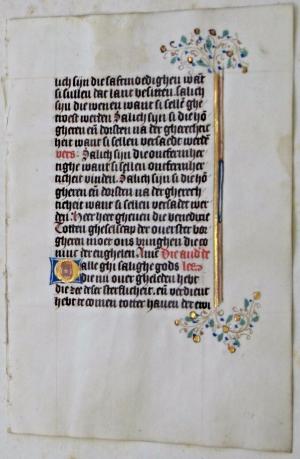 lich sijn die saftmoedighen want
si sullen dat lant besitten. Salich
sijn die wenen want si sellen ghe
troest werden Salich sijn si die hō
gheren eñ dorsten na der gherechtic
heit want si sellen versaedt werdē
vers. Salich sijn die ontfermher
tighe want si sellen ontfermher
ticheit vinden. Salich sijn si die hō
gheren eñ dorsten na der gherech
ticheit want si sellen versadet wer
den. Heer heer gheuen die benedixie
Totten gheselscap der ouerster bor
gheren moet ons bringhen die co
ninc der enghelen. Amē Die ander
alle ghi salighe gods les
die nu ouer gheleden hebt
die zee deser sterflicheit. eñ verdient
hebt te comen totter hauen der ewi